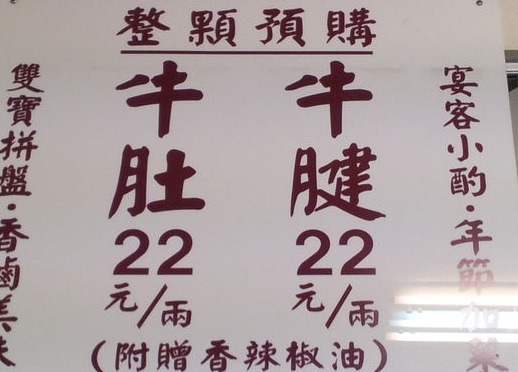 整顆預購
牛腱
22
元/兩
牛肚
22
元/兩
(附贈香辣椒油)
宴客小酌·年節加菜
雙寶拼盤·香鹵美味